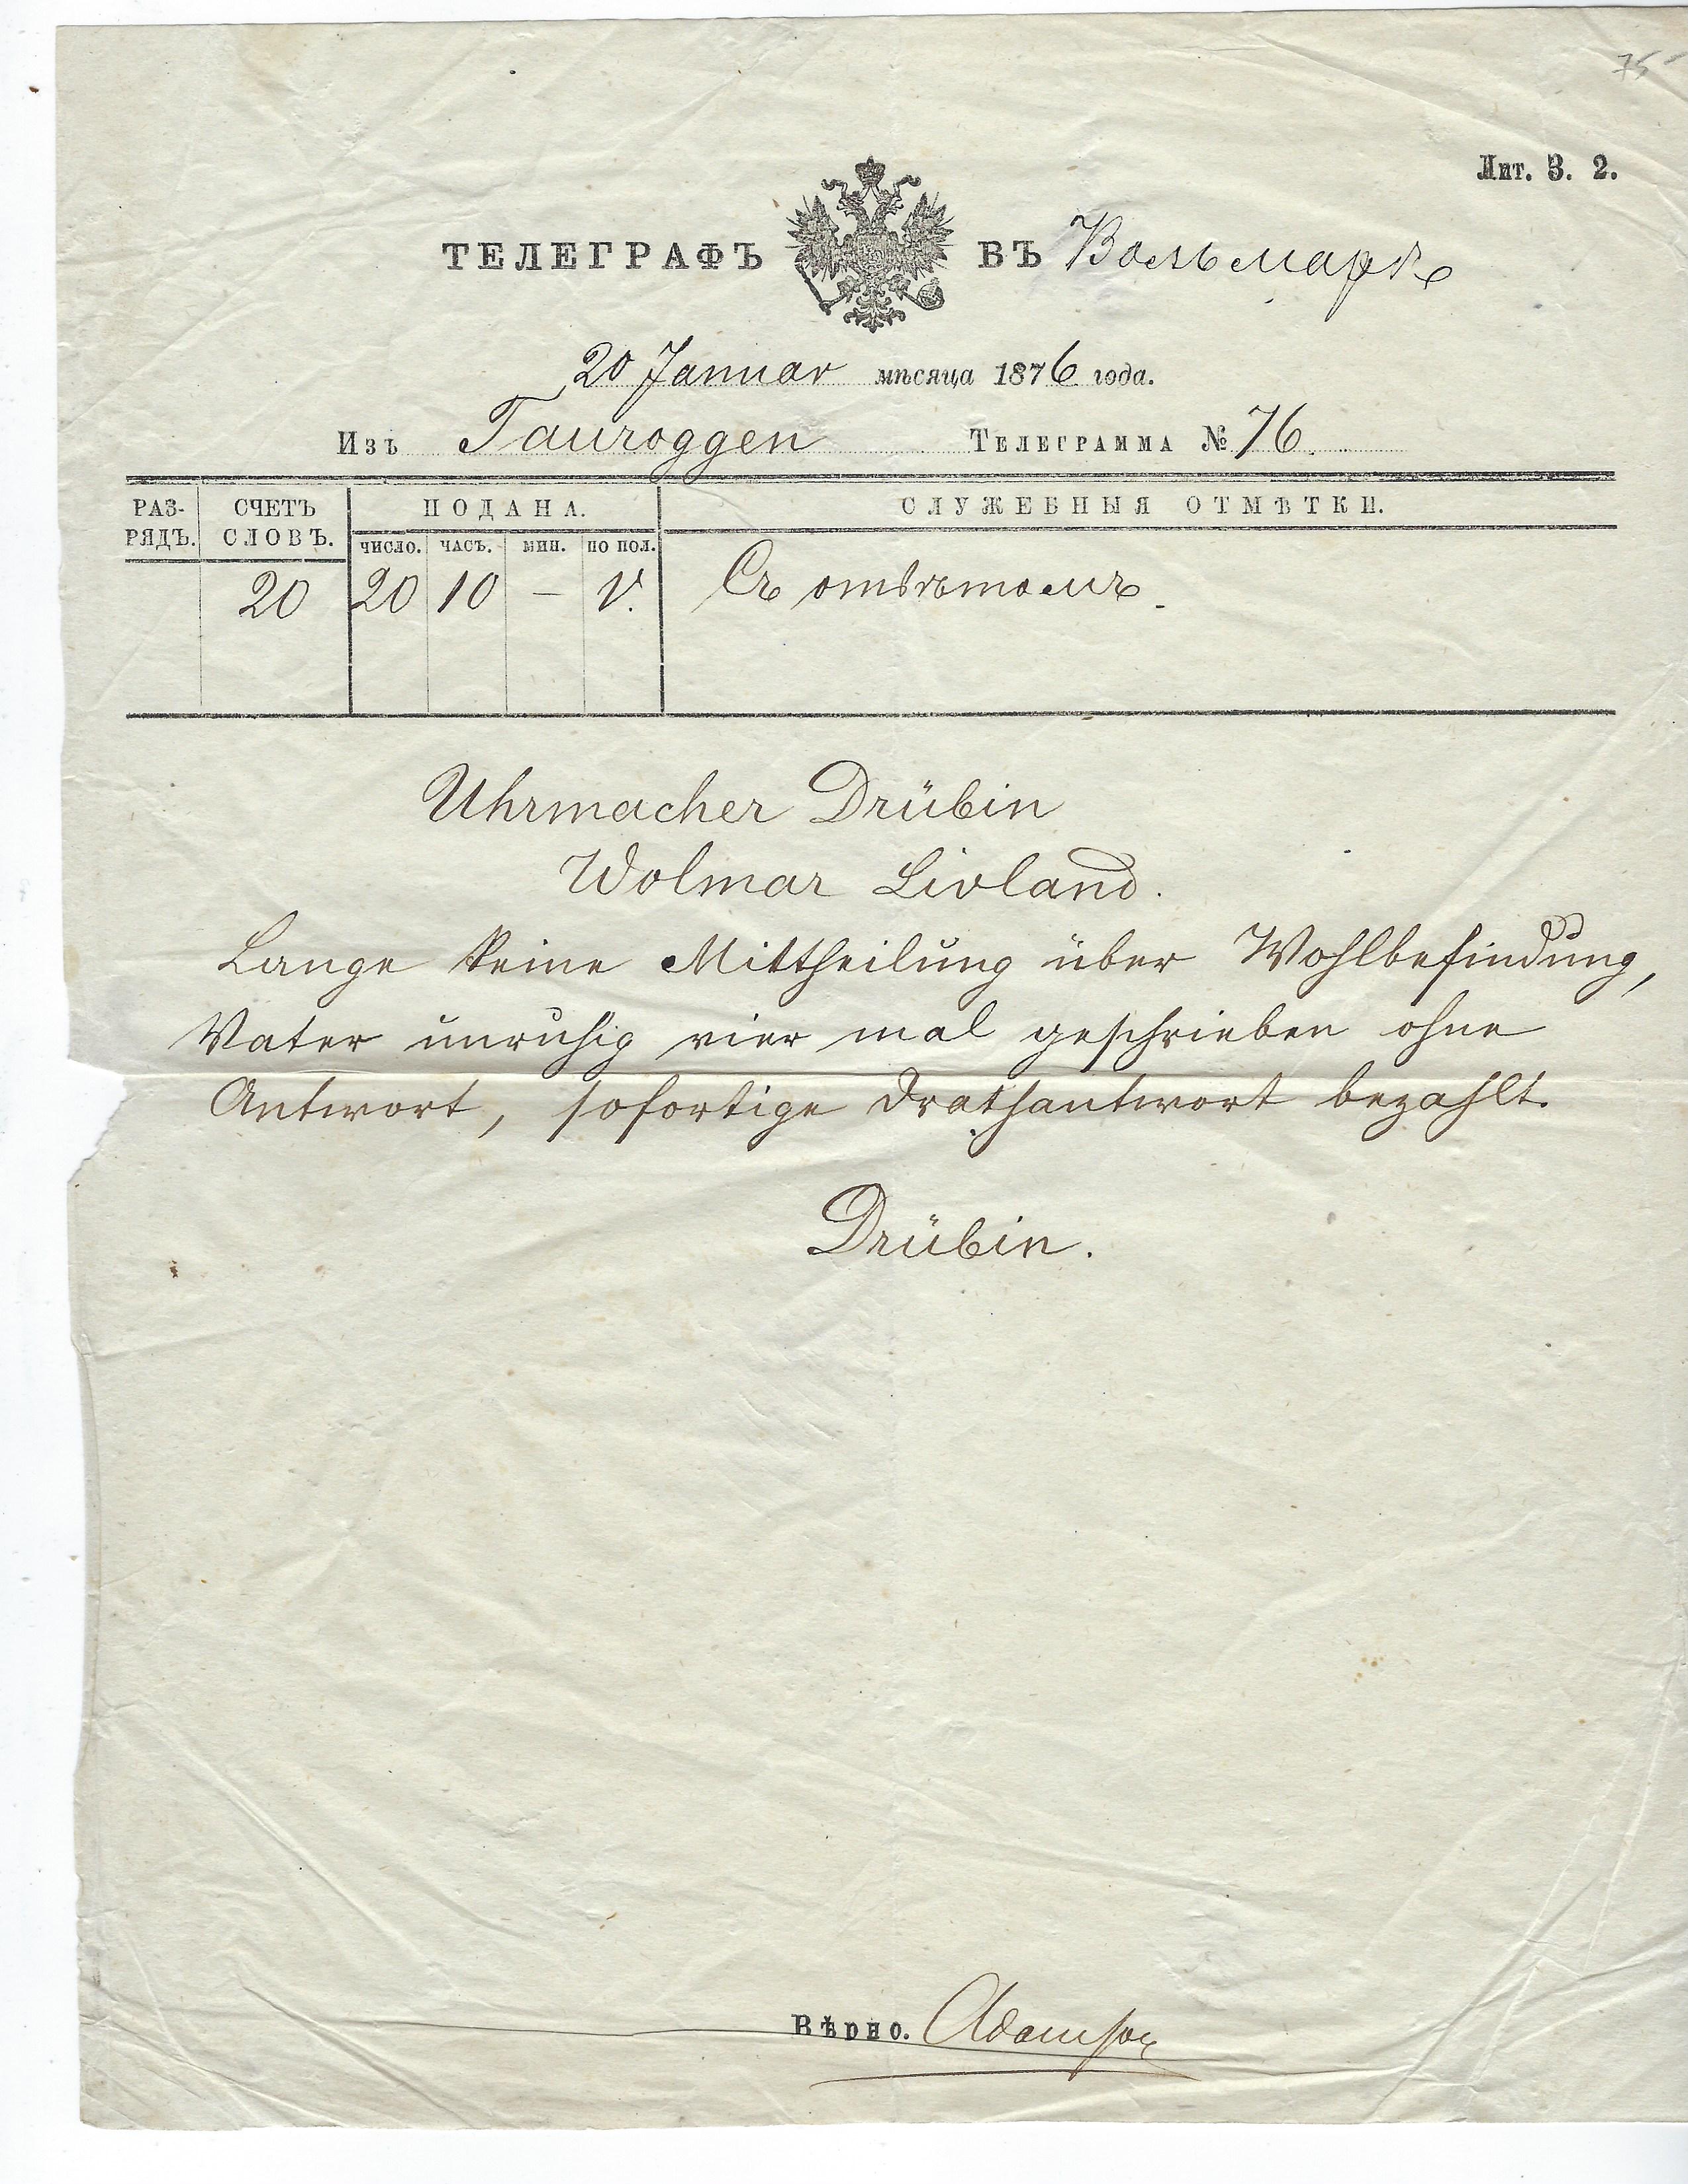 75
Лит. З. 2.
ТЕЛЕГРАФЪ ВЪ Вольмарѣ
20 Januar мѣсяца 1876 года.
Изъ Tauroggen Телеграмма № 76.
РАЗРЯДЪ. СЧЕТЪ СЛОВЪ. ПОДАНА. СЛУЖЕБНЫЯ ОТМѢТКИ.
ЧИСЛО. ЧАСЪ. МИН. ПО ПОЛ.
20 20 10 — V. Съ отвѣтомъ.
Uhrmacher Drübin
Wolmar Livland.
Lange keine Mittheilung über Wohlbefindung,
Vater unruhig vier mal geschrieben ohne
Antwort, sofortige Drathantwort bezahlt.
Drübin.
Вѣрно. Adamson